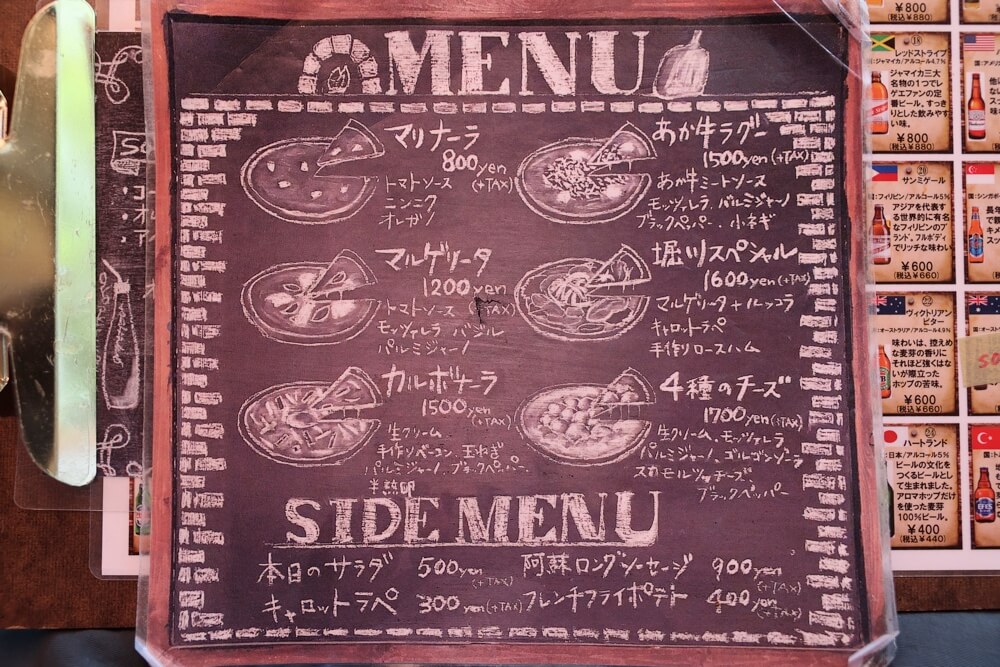 MENU
マリナーラ
800yen
(+TAX)
トマトソース
ニンニク
オレガノ
あか牛ラグー
1500yen(+TAX)
あか牛ミートソース
モッツァレラ、パルミジャーノ
ブラックペッパー、小ネギ
マルゲリータ
1200yen
(+TAX)
トマトソース
モッツァレラ バジル
パルミジャーノ
堀川スペシャル
1600yen(+TAX)
マルゲリータ+ルッコラ
キャロットラペ
手作りロースハム
カルボナーラ
1500yen
(+TAX)
生クリーム
手作りベーコン、玉ねぎ
パルミジャーノ、ブラックペッパー、
半熟卵
4種のチーズ
1700yen(+TAX)
生クリーム、モッツァレラ
パルミジャーノ、ゴルゴンゾーラ
スカモルツァチーズ
ブラックペッパー
SIDE MENU
本日のサラダ 500yen
(+TAX)
阿蘇ロングソーセージ 900yen
(+TAX)
キャロットラペ 300yen(+TAX)
フレンチフライポテト 400yen
(+TAX)
¥800
(税込¥880)
レッドストライプ
国:ジャマイカ/アルコール4.7%
ジャマイカ三大
名物の1つでレ
ゲエファンの定
番ビール。すっき
りとした飲みやす
い味。
¥800
(税込¥880)
サンミゲール
国:フィリピン/アルコール5%
アジアを代表す
る世界的に有名
なフィリピンのブ
ランド。フルボディ
でリッチな味わい
¥600
(税込¥660)
ヴィクトリアン
ビター
国:オーストラリア/アルコール4.9%
味わいは、控えめ
な麦芽の香りに
それほど強くはな
いが際立った
ホップの苦味。
¥600
(税込¥660)
ハートランド
国:日本/アルコール5%
ビールの文化を
つくるビールとし
て生まれました。
アロマホップだけ
を使った麦芽
100%ビール。
¥400
(税込¥440)